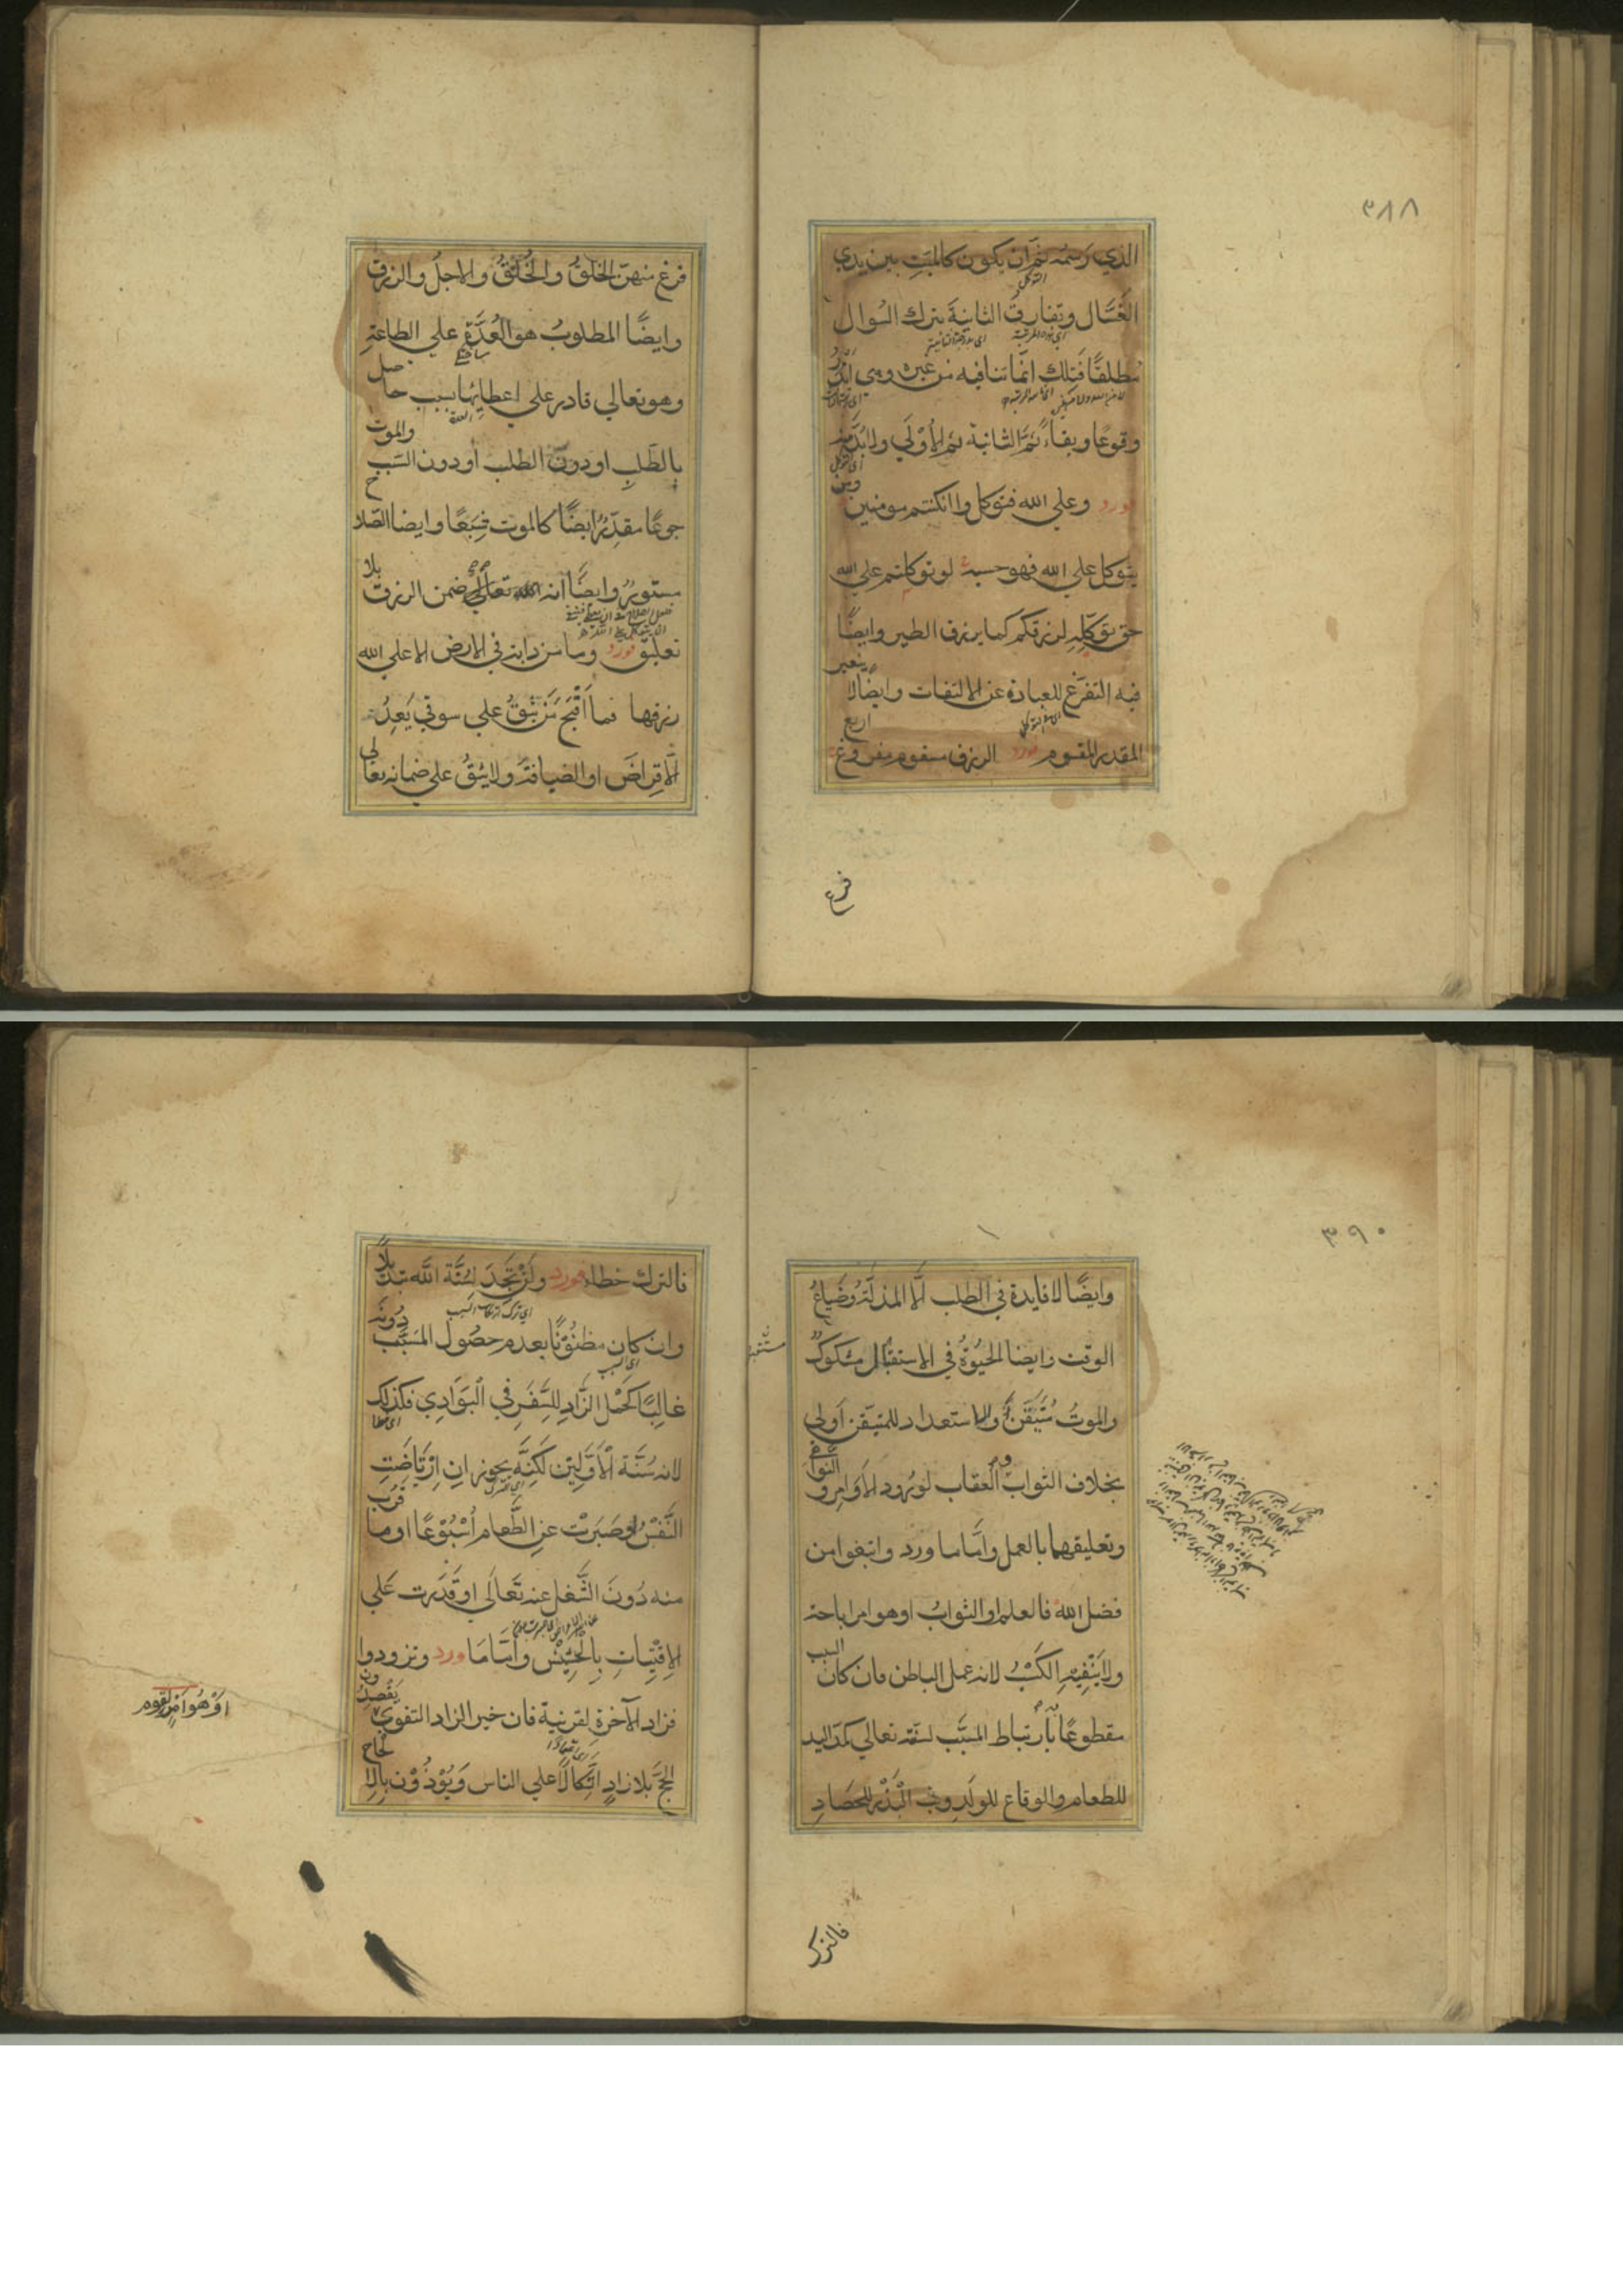 ٣٨٨
الذي رسمه ثم ان يكون كالميت بين يدي
التوكل
الغسال وتفارق الثانية بترك السوال
مطلقا فتلك انما تنافيه من غيره وهي اندر
وقوعا وبقاء ثم الثانية ثم الأولي ولا بد منه
ورد وعلي الله فتوكلوا ان كنتم مومنين ومن
يتوكل علي الله فهو حسبه لو توكلتم علي الله
حق توكله لرزقكم كما يرزق الطير وايضا
فيه التفرغ للعبادة عن الالتفات وايضا لا يتغير
المقدر المقسوم ورد الرزق مقسوم مفروغ اربع
فرغ
فرغ منهن الخلق والخلق والاجل والرزق
وايضا المطلوب هو العدة علي الطاعة
وهو تعالي قادر علي اعطائها بسبب حاصل
بالطلب او دون الطلب او دون السبب والموت
جوعا مقدر ايضا كالموت شبعا وايضا الصلاح
مستور وايضا انه تعالي ضمن الرزق بلا
تعليق ورد وما من دابة في الارض الا علي الله
رزقها فما اقبح من يثق علي سوقي يعد
الاقراض او الضيافة ولا يثق علي ضمانه تعالي
٣٩٠
وايضا لا فايدة في الطلب الا المذلة وضياع
الوقت وايضا الحيوة في الاستقبال مشكوك
والموت متيقن والاستعداد للمتيقن اولي
بخلاف الثواب والعقاب لورود الاوامر والنواهي
وتعليقهما بالعمل واما ما ورد وابتغوا من
فضل الله فالعلم او الثواب او هو امر اباحة
ولا ينفيه الكسب لانه عمل الباطن فان كان السبب
مقطوعا بارتباط المسبب لسنته تعالي كمد اليد
للطعام والوقاع للولد وبث البذر للحصاد
فالترك
فالترك خطاء ورد ولن تجد لسنة الله تبديلا
وان كان مظنونا بعدم حصول المسبب دونه
غالبا كحمل الزاد للسفر في البوادي فكذلك
لانه سنة الاولين لكنه يجوز ان ارتاضت
النفس وصبرت عن الطعام اسبوعا او ما قرب
منه دون الشغل عنه تعالي او قدرت علي
الاقتيات بالحشيش واما ما ورد وتزودوا
فزاد الآخرة لقرينة فان خير الزاد التقوي
او هو امر لقوم
يقصدون
الحج بلا زاد اتكالا علي الناس ويوذون بالالحاح